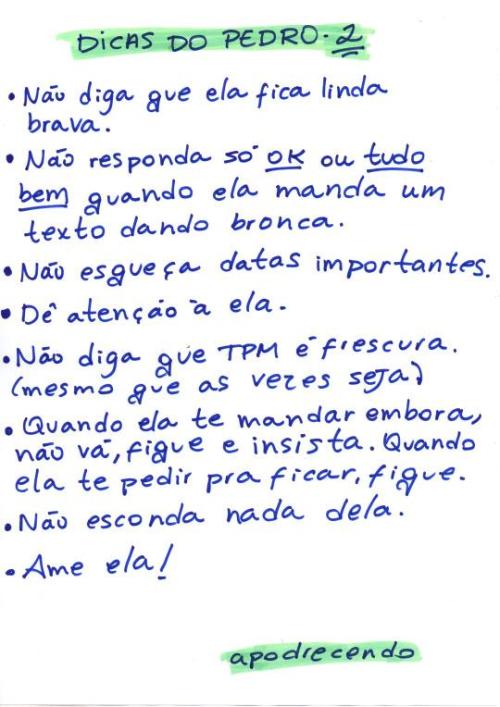 DICAS DO PEDRO. 2
• Não diga que ela fica linda
brava.
• Não responda só OK ou tudo
bem quando ela manda um
texto dando bronca.
• Não esqueça datas importantes.
• Dê atenção à ela.
• Não diga que TPM é frescura.
(mesmo que as vezes seja)
• Quando ela te mandar embora,
não vá, fique e insista. Quando
ela te pedir pra ficar, fique.
• Não esconda nada dela.
• Ame ela!
apodrecendo